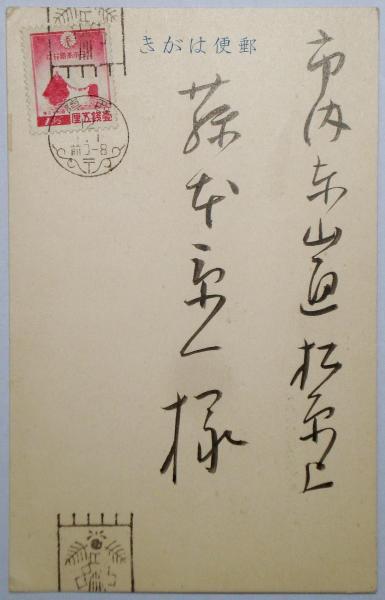 郵便はがき
市内東山通松原上
藤本京一様
壹錢五厘
前0-8